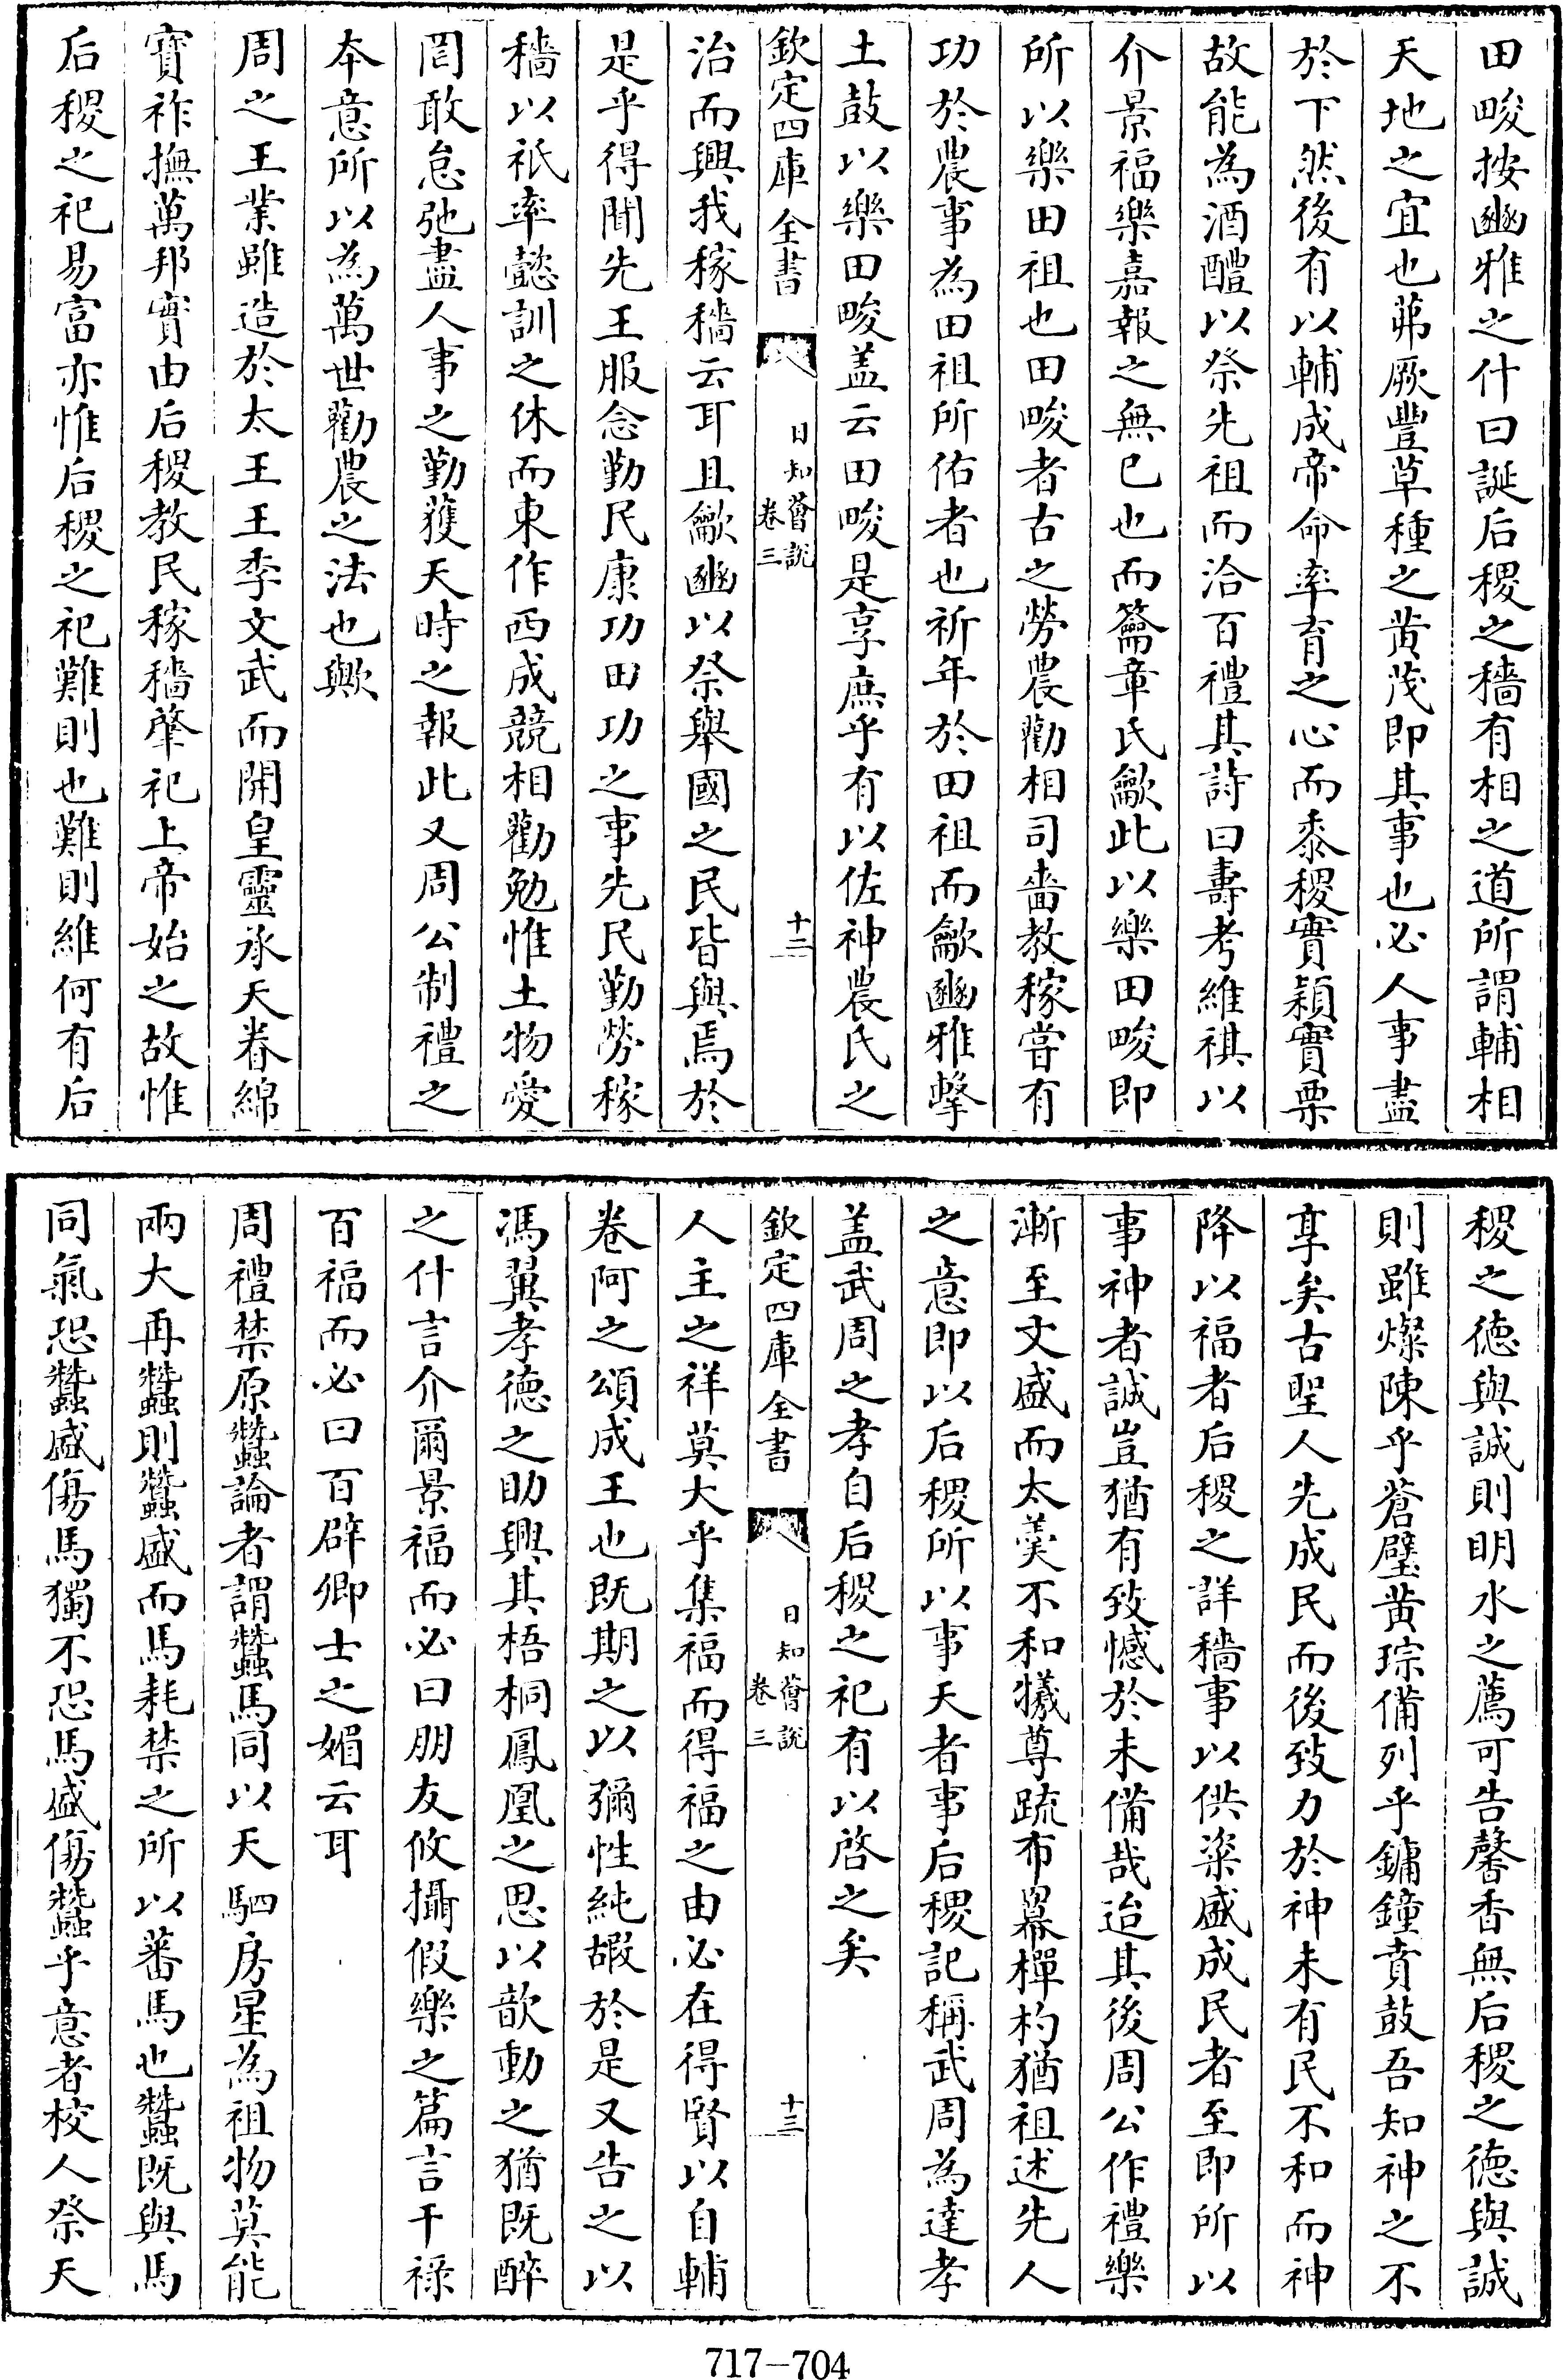 田畯按豳雅之什曰誕后稷之穡有相之道所謂輔相
天地之宜也茀厥豐草種之黄茂即其事也必人事盡
於下然後有以輔成帝命率育之心而黍稷實穎實栗
故能為酒醴以祭先祖而洽百禮其詩曰壽考維祺以
介景福樂嘉報之無已也而籥章氏龡此以樂田畯即
所以樂田祖也田畯者古之勞農勸相司嗇教稼嘗有
功於農事為田祖所佑者也祈年於田祖而龡豳雅擊
土鼓以樂田畯盖云田畯是享庶乎有以佐神農氏之
欽定四庫全書
日知薈說
卷三
十二
治而興我稼穡云耳且龡豳以祭舉國之民皆與焉於
是乎得聞先王服念勤民康功田功之事先民勤勞稼
穡以祇率懿訓之休而東作西成競相勸勉惟土物愛
罔敢怠弛盡人事之勤獲天時之報此又周公制禮之
本意所以為萬世勸農之法也歟
周之王業雖造於太王王季文武而開皇靈承天眷綿
寶祚撫萬邦實由后稷教民稼穡肇祀上帝始之故惟
后稷之祀易富亦惟后稷之祀難則也難則維何有后
稷之德與誠則明水之薦可告馨香無后稷之德與誠
則雖燦陳乎蒼璧黄琮備列乎鏞鐘賁鼓吾知神之不
享矣古聖人先成民而後致力於神未有民不和而神
降以福者后稷之詳穡事以供粢盛成民者至即所以
事神者誠豈猶有致憾於未備哉迨其後周公作禮樂
漸至文盛而太羮不和犧尊疏布冪樿杓猶祖述先人
之意即以后稷所以事天者事后稷記稱武周為達孝
盖武周之孝自后稷之祀有以啓之矣
欽定四庫全書
日知薈說
卷三
十三
人主之祥莫大乎集福而得福之由必在得賢以自輔
卷阿之頌成王也既期之以彌性純嘏於是又告之以
馮翼孝德之助興其梧桐鳳凰之思以歆動之猶既醉
之什言介爾景福而必曰朋友攸攝假樂之篇言干祿
百福而必曰百辟卿士之媚云耳
周禮禁原蠶論者謂蠶馬同以天駟房星為祖物莫能
兩大再蠶則蠶盛而馬耗禁之所以蕃馬也蠶既與馬
同氣恐蠶盛傷馬獨不恐馬盛傷蠶乎意者校人祭天
717-704